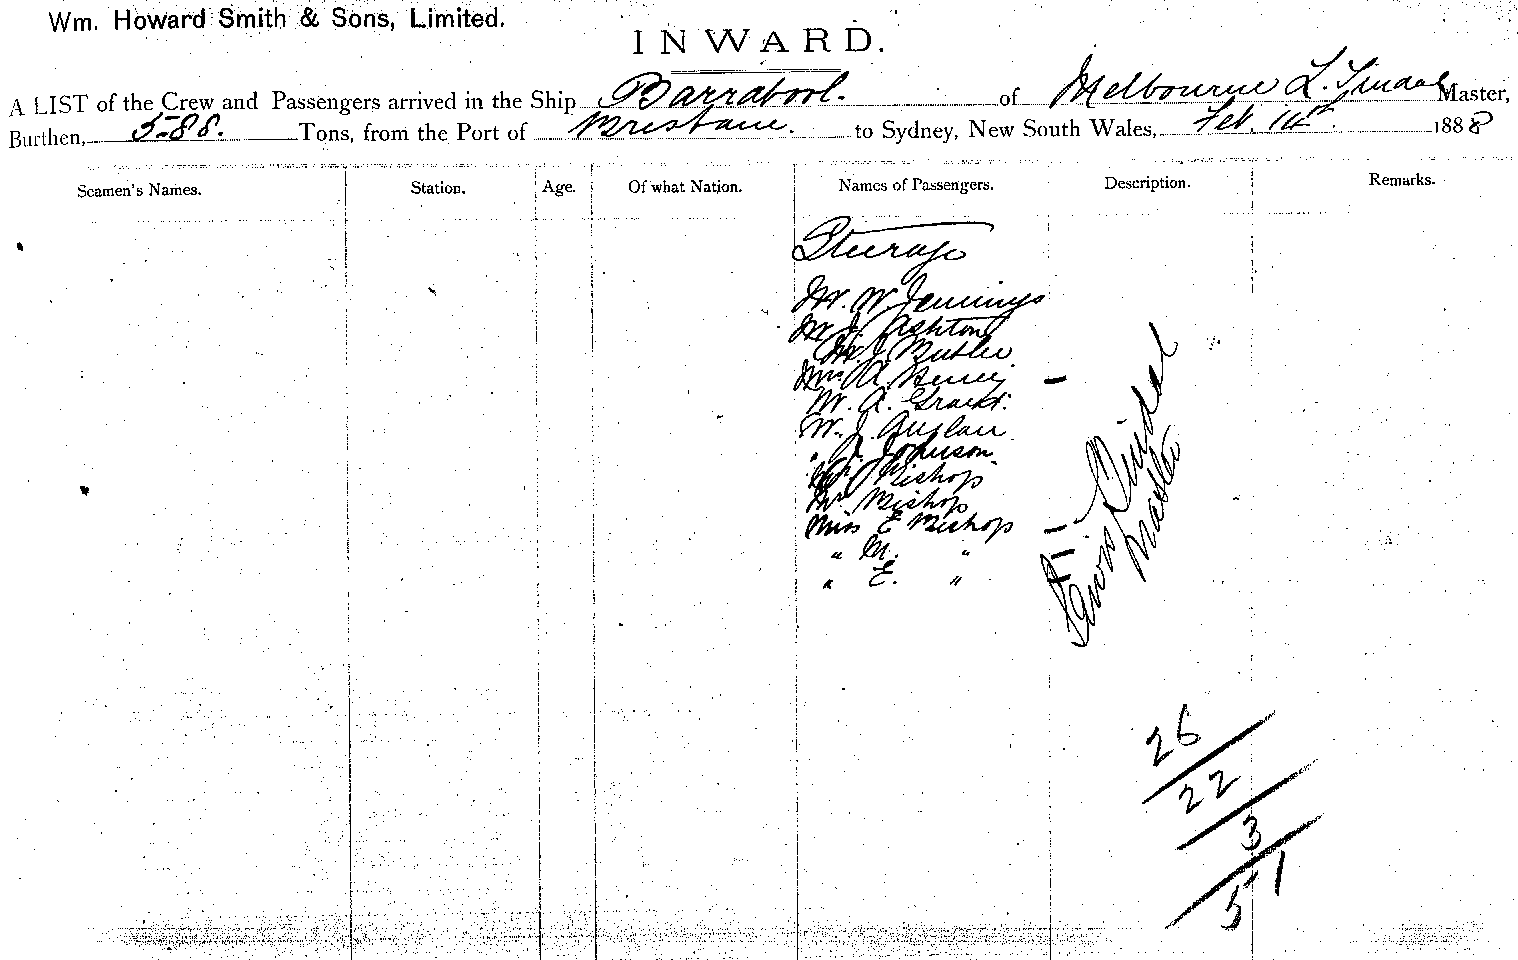 Wm. Howard Smith & Sons, Limited.
INWARD.
A LIST of the Crew and Passengers arrived in the Ship Barrabool. of Melbourne L. Tindal Master,
Burthen, 588. Tons, from the Port of Brisbane. to Sydney, New South Wales, Feb. 14th 1888
Seamen's Names. Station. Age. Of what Nation. Names of Passengers. Description. Remarks.
Steerage
Mr. W Jennings
Mr J. Ashton
Mr. J. Butler
Mrs A.
Mr. A. Grant.
W. J.
" Johnson
Bishop
Mr Bishop
Miss E Bishop
" M. "
" E. "
Tindal
Master
26
22
3
51